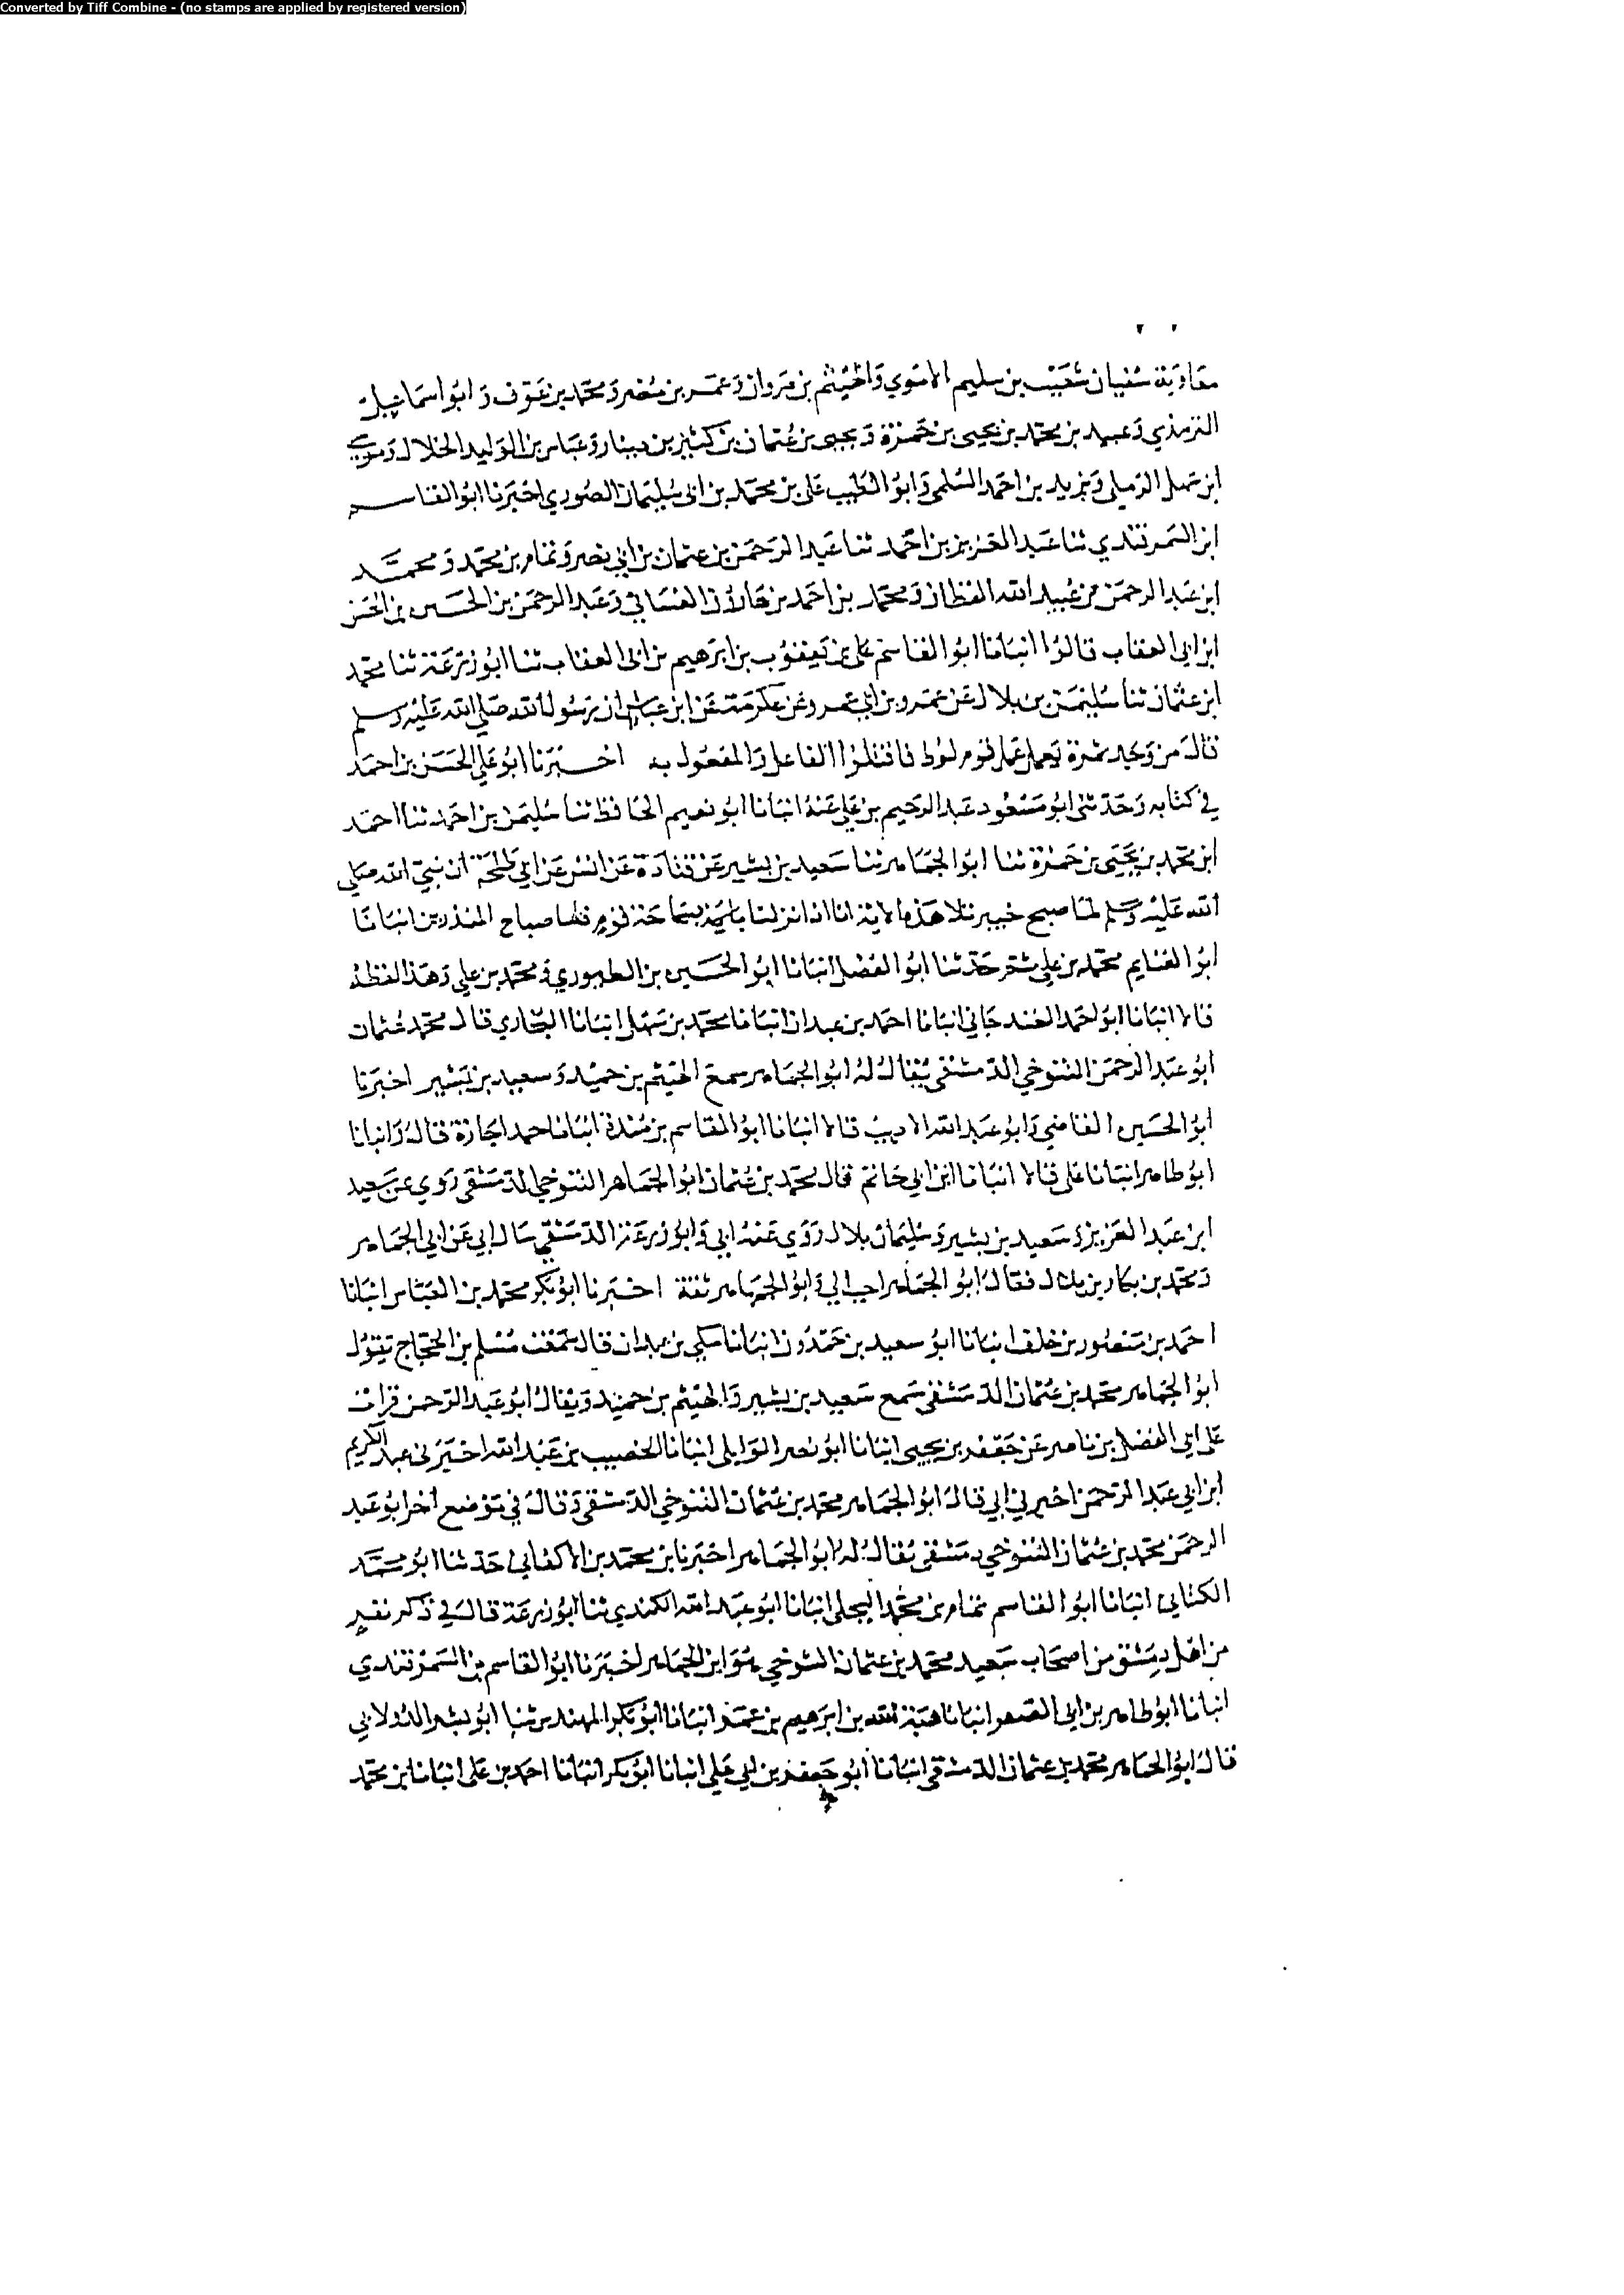 Converted by Tiff Combine - (no stamps are applied by registered version)
معاوية سفيان شعيب بن سليم الاموي والهيثم بن مروان وعمر بن مضر ومحمد بن عوف وابو اسماعيل
الترمذي وعبيد بن محمد بن يحيى بن حمزة ويحيى بن عثمان بن كثير بن دينار وعباس بن الوليد الخلال وموسى
ابن سهل الرملي ويزيد بن احمد السلمي وابو الطيب علي بن محمد بن ابي سليمان الصوري اخبرنا ابو القاسم
ابن السمرقندي ثنا عبد العزيز بن احمد ثنا عبد الرحمن بن عثمان بن ابي نصر وتمام بن محمد ومحمد
ابن عبد الرحمن بن عبيد الله القطان ومحمد بن احمد بن هارون الغساني وعبد الرحمن بن الحسين بن الحسن
ابن ابي العقاب قالوا انبانا ابو القاسم علي بن يعقوب بن ابرهيم بن ابي العقاب ثنا ابو زرعة ثنا محمد
ابن عثمان ثنا سليمن بن بلال عن عمرو بن ابي عمرو عن عكرمة عن ابن عباس ان رسول الله صلى الله عليه وسلم
قال من وجدتموه يعمل عمل قوم لوط فاقتلوا الفاعل والمفعول به اخبرنا ابو علي الحسن بن احمد
في كتابه وحدثني ابو مسعود عبد الرحيم بن علي عنه انبانا ابو نعيم الحافظ ثنا سليمن بن احمد ثنا احمد
ابن محمد بن يحيى بن حمزة ثنا ابو الجماهر ثنا سعيد بن بشير عن قتادة عن انس عن ابي طلحة ان نبي الله صلى
الله عليه وسلم لما صبح خيبر تلا هذه الاية انا اذا نزلنا بساحة قوم فساء صباح المنذرين انبانا
ابو الغنايم محمد بن علي ثم حدثنا ابو الفضل انبانا ابو الحسين بن الطيوري ومحمد بن علي وهذا لفظه
قالا انبانا ابو احمد الغندجاني انبانا احمد بن عبدان انبانا محمد بن سهل انبانا البخاري قال محمد عثمان
ابو عبد الرحمن التنوخي الدمشقي يقال له ابو الجماهر سمع الهيثم بن حميد وسعيد بن بشير اخبرنا
ابو الحسين القاضي وابو عبد الله الاديب قالا انبانا ابو القاسم بن مندة انبانا حمد اجازة قال وانبانا
ابو طاهر انبانا علي قالا انبانا ابن ابي حاتم قال محمد بن عثمان ابو الجماهر التنوخي الدمشقي روي عن سعيد
ابن عبد العزيز وسعيد بن بشير وسليمان بلال روي عنه ابي وابو زرعة الدمشقي سال ابي عن ابي الجماهر
ومحمد بن بكار بن بلال فقال ابو الجماهر احب الي وابو الجماهر ثقة اخبرنا ابو بكر محمد بن العباس انبانا
احمد بن منصور بن خلف انبانا ابو سعيد بن حمدون انبانا مكي بن عبدان قال سمعت مسلم بن الحجاج يقول
ابو الجماهر محمد بن عثمان الدمشقي سمع سعيد بن بشير والهيثم بن حميد ويقال ابو عبد الرحمن قرات
على ابي الفضل بن ناصر عن جعفر بن يحيى انبانا ابو نصر الوايلي انبانا الخصيب بن عبد الله اخبرني عبد الكريم
ابن ابي عبد الرحمن اخبرني ابي قال ابو الجماهر محمد بن عثمان التنوخي الدمشقي وقال في موضع اخر ابو عبد
الرحمن محمد بن عثمان التنوخي دمشقي يقال له ابو الجماهر اخبرنا بن محمد بن الاكفاني حدثنا ابو محمد
الكتاني انبانا ابو القاسم تمام بن محمد البجلي انبانا ابو عبد الله الكندي ثنا ابو زرعة قال في ذكر نفر
من اهل دمشق من اصحاب سعيد محمد بن عثمان التنوخي هو ابن الجماهر اخبرنا ابو القاسم بن السمرقندي
انبانا ابو طاهر بن ابي الصقر انبانا هبة الله بن ابرهيم بن عمر انبانا ابو بكر المهندس ثنا ابو بشر الدولابي
قال ابو الجماهر محمد بن عثمان الدمشقي انبانا ابو جعفر بن ابي علي انبانا ابو بكر انبانا احمد بن علي انبانا بن محمد